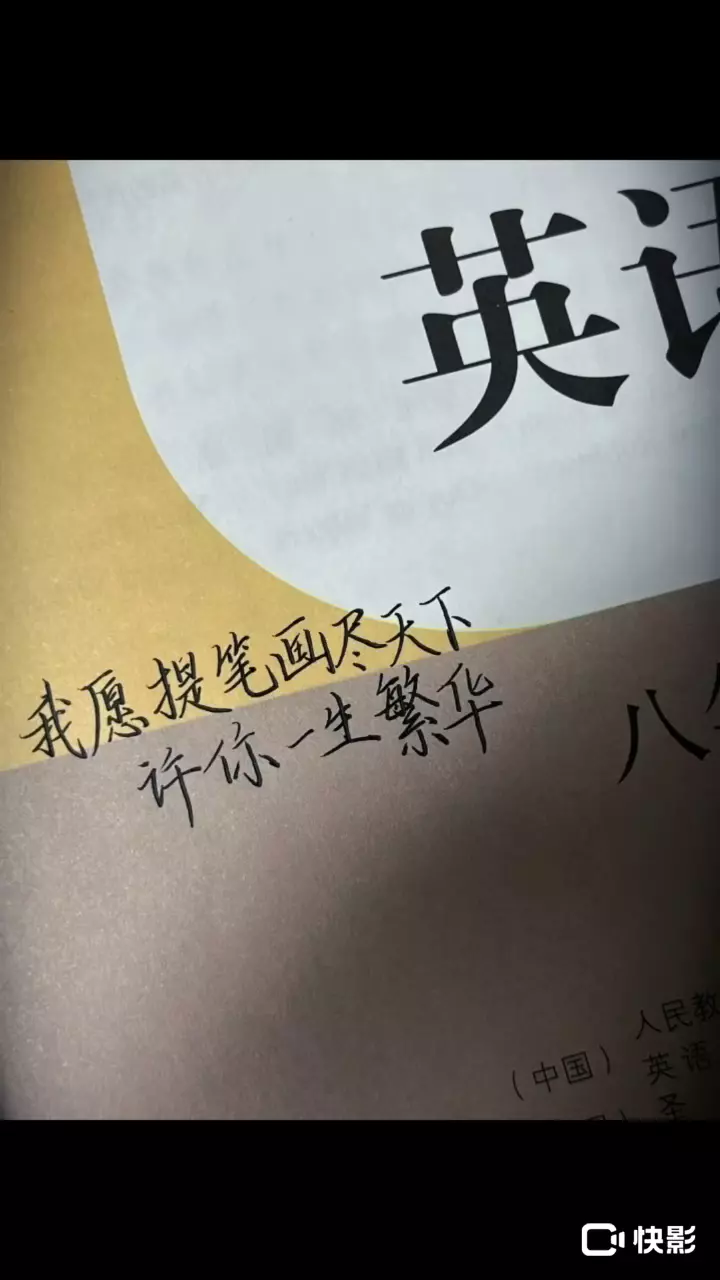 英语
我愿提笔画尽天下
许你一生繁华
八
人民教
(中国) 英语
圣
快影